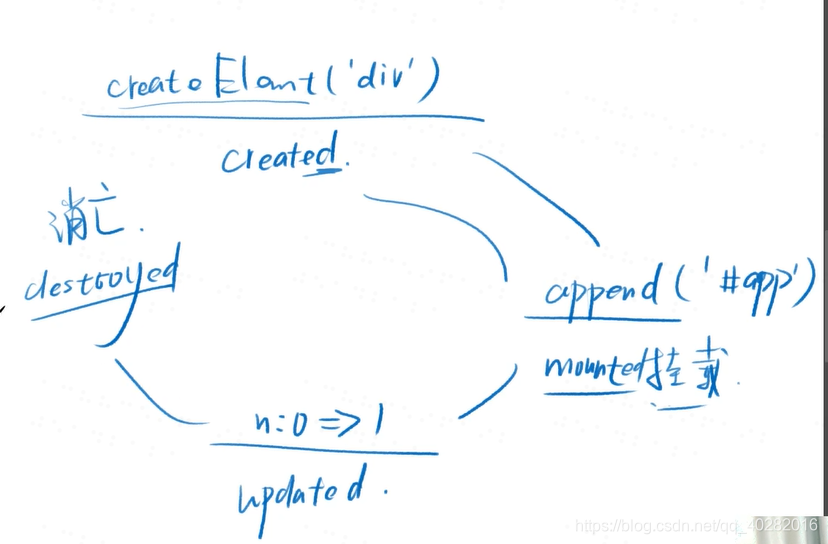 createElamt('div')
created.
消亡.
destroyed
append('#app')
mounted挂载.
n:0 => 1
updated.
https://blog.csdn.net/qq_40282016